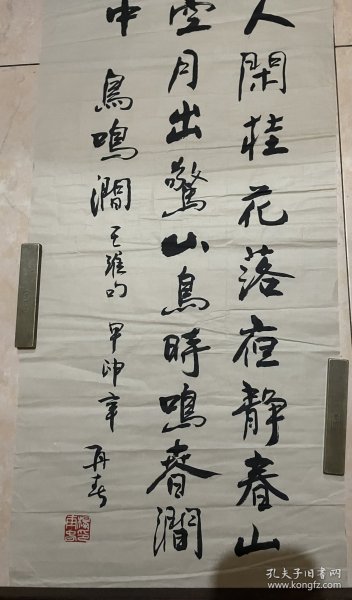 人閑桂花落夜静春山
空月出驚山鳥時鳴春澗
中 鳥鳴澗 王維句 甲申年
孔夫子旧书网
www.kongfz.com